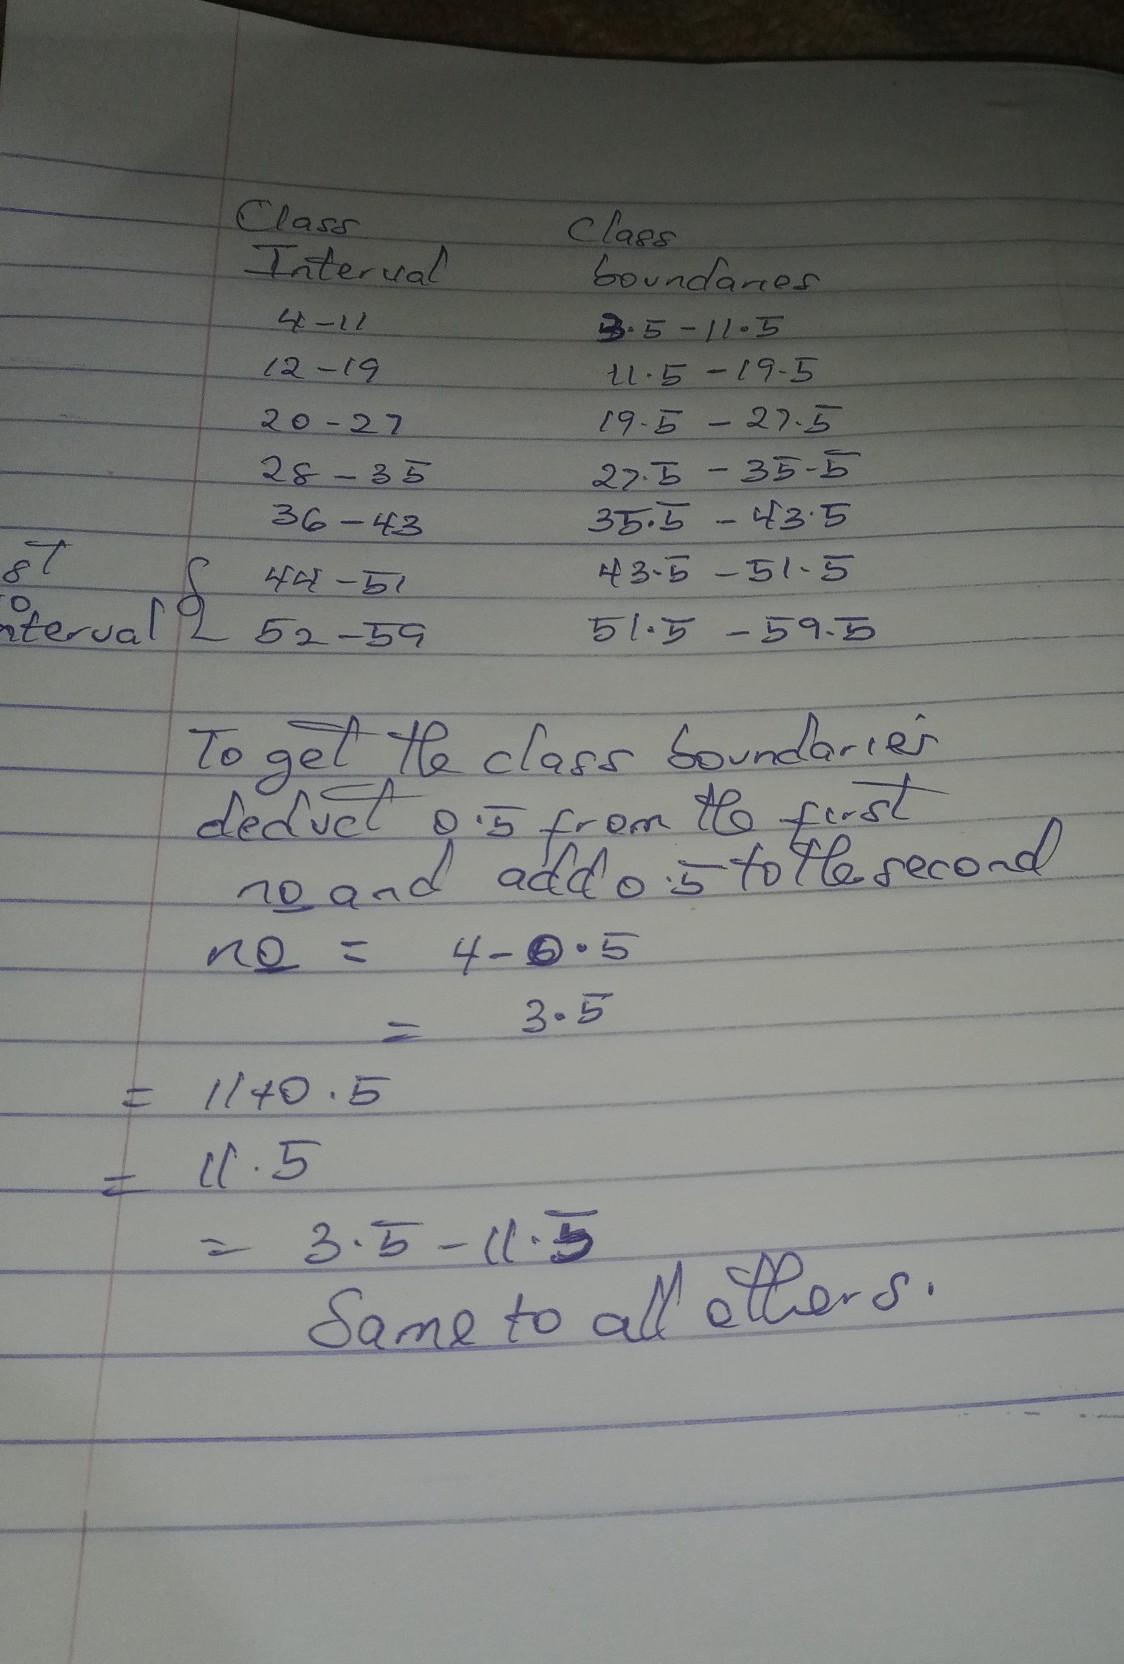 Class Class
Interval boundaries
4-11 3.5-11.5
12-19 11.5-19.5
20-27 19.5-27.5
28-35 27.5-35.5
36-43 35.5-43.5
44-51 43.5-51.5
nterval 52-59 51.5-59.5
To get the class boundaries
deduct 0.5 from the first
no and add 0.5 to the second
no = 4-0.5
= 3.5
= 11+0.5
= 11.5
= 3.5-11.5
Same to all others.